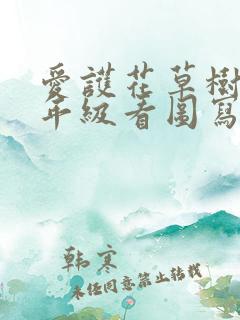 愛護花草樹
年級看圖寫
韩寒
未经同意禁止转载